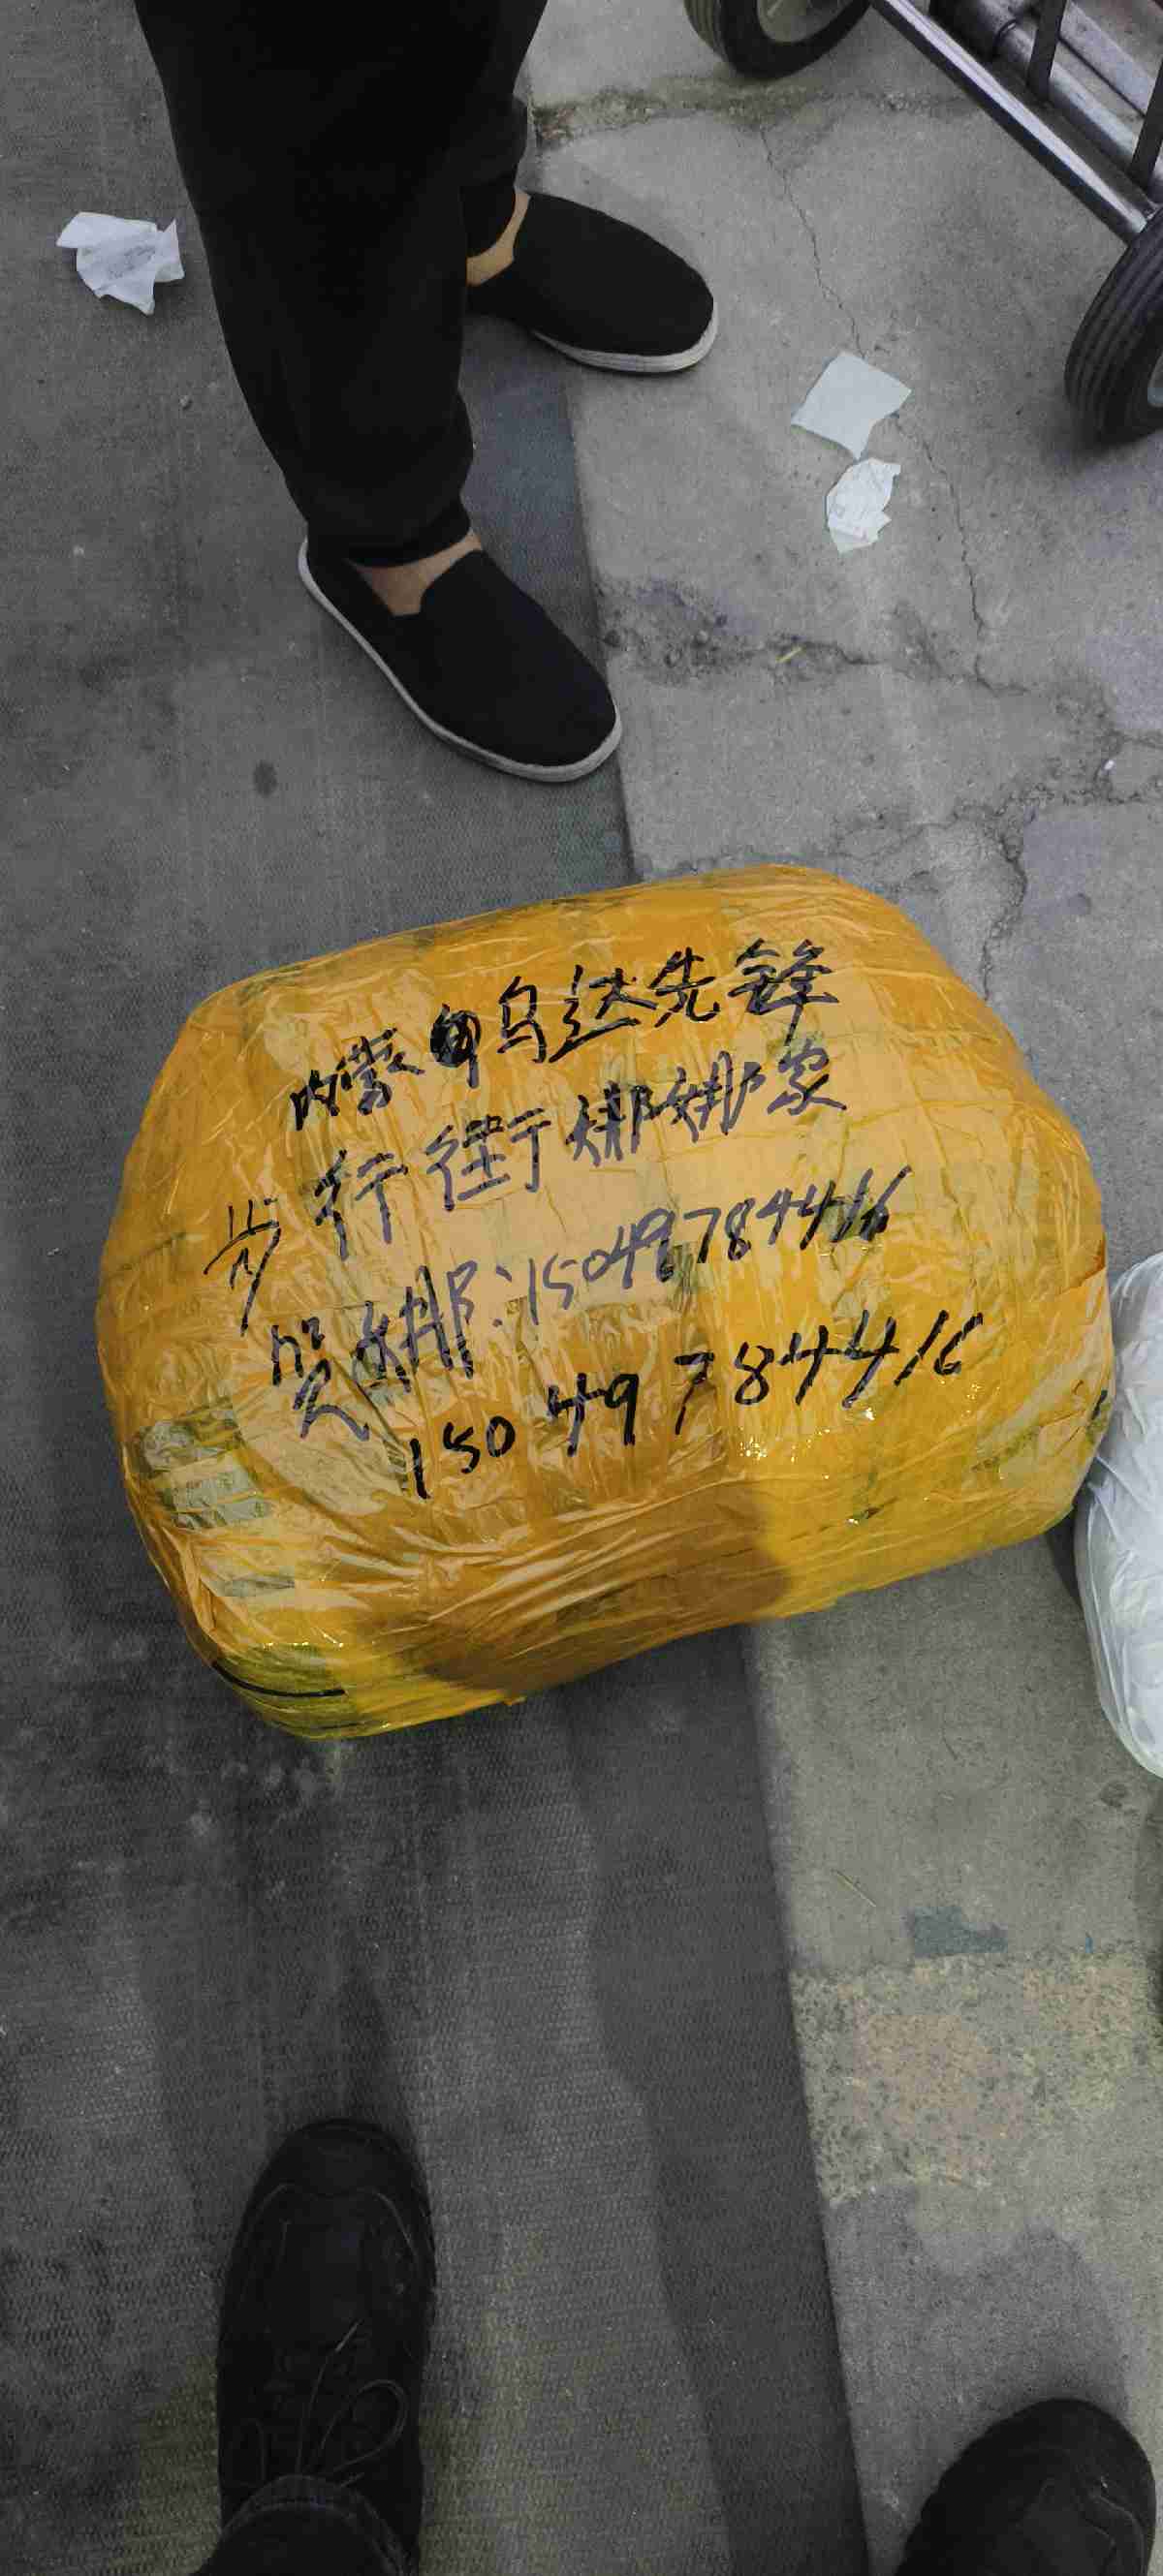 内蒙 乌达先锋
步行街娜娜家
娜:15049784416
15049784416